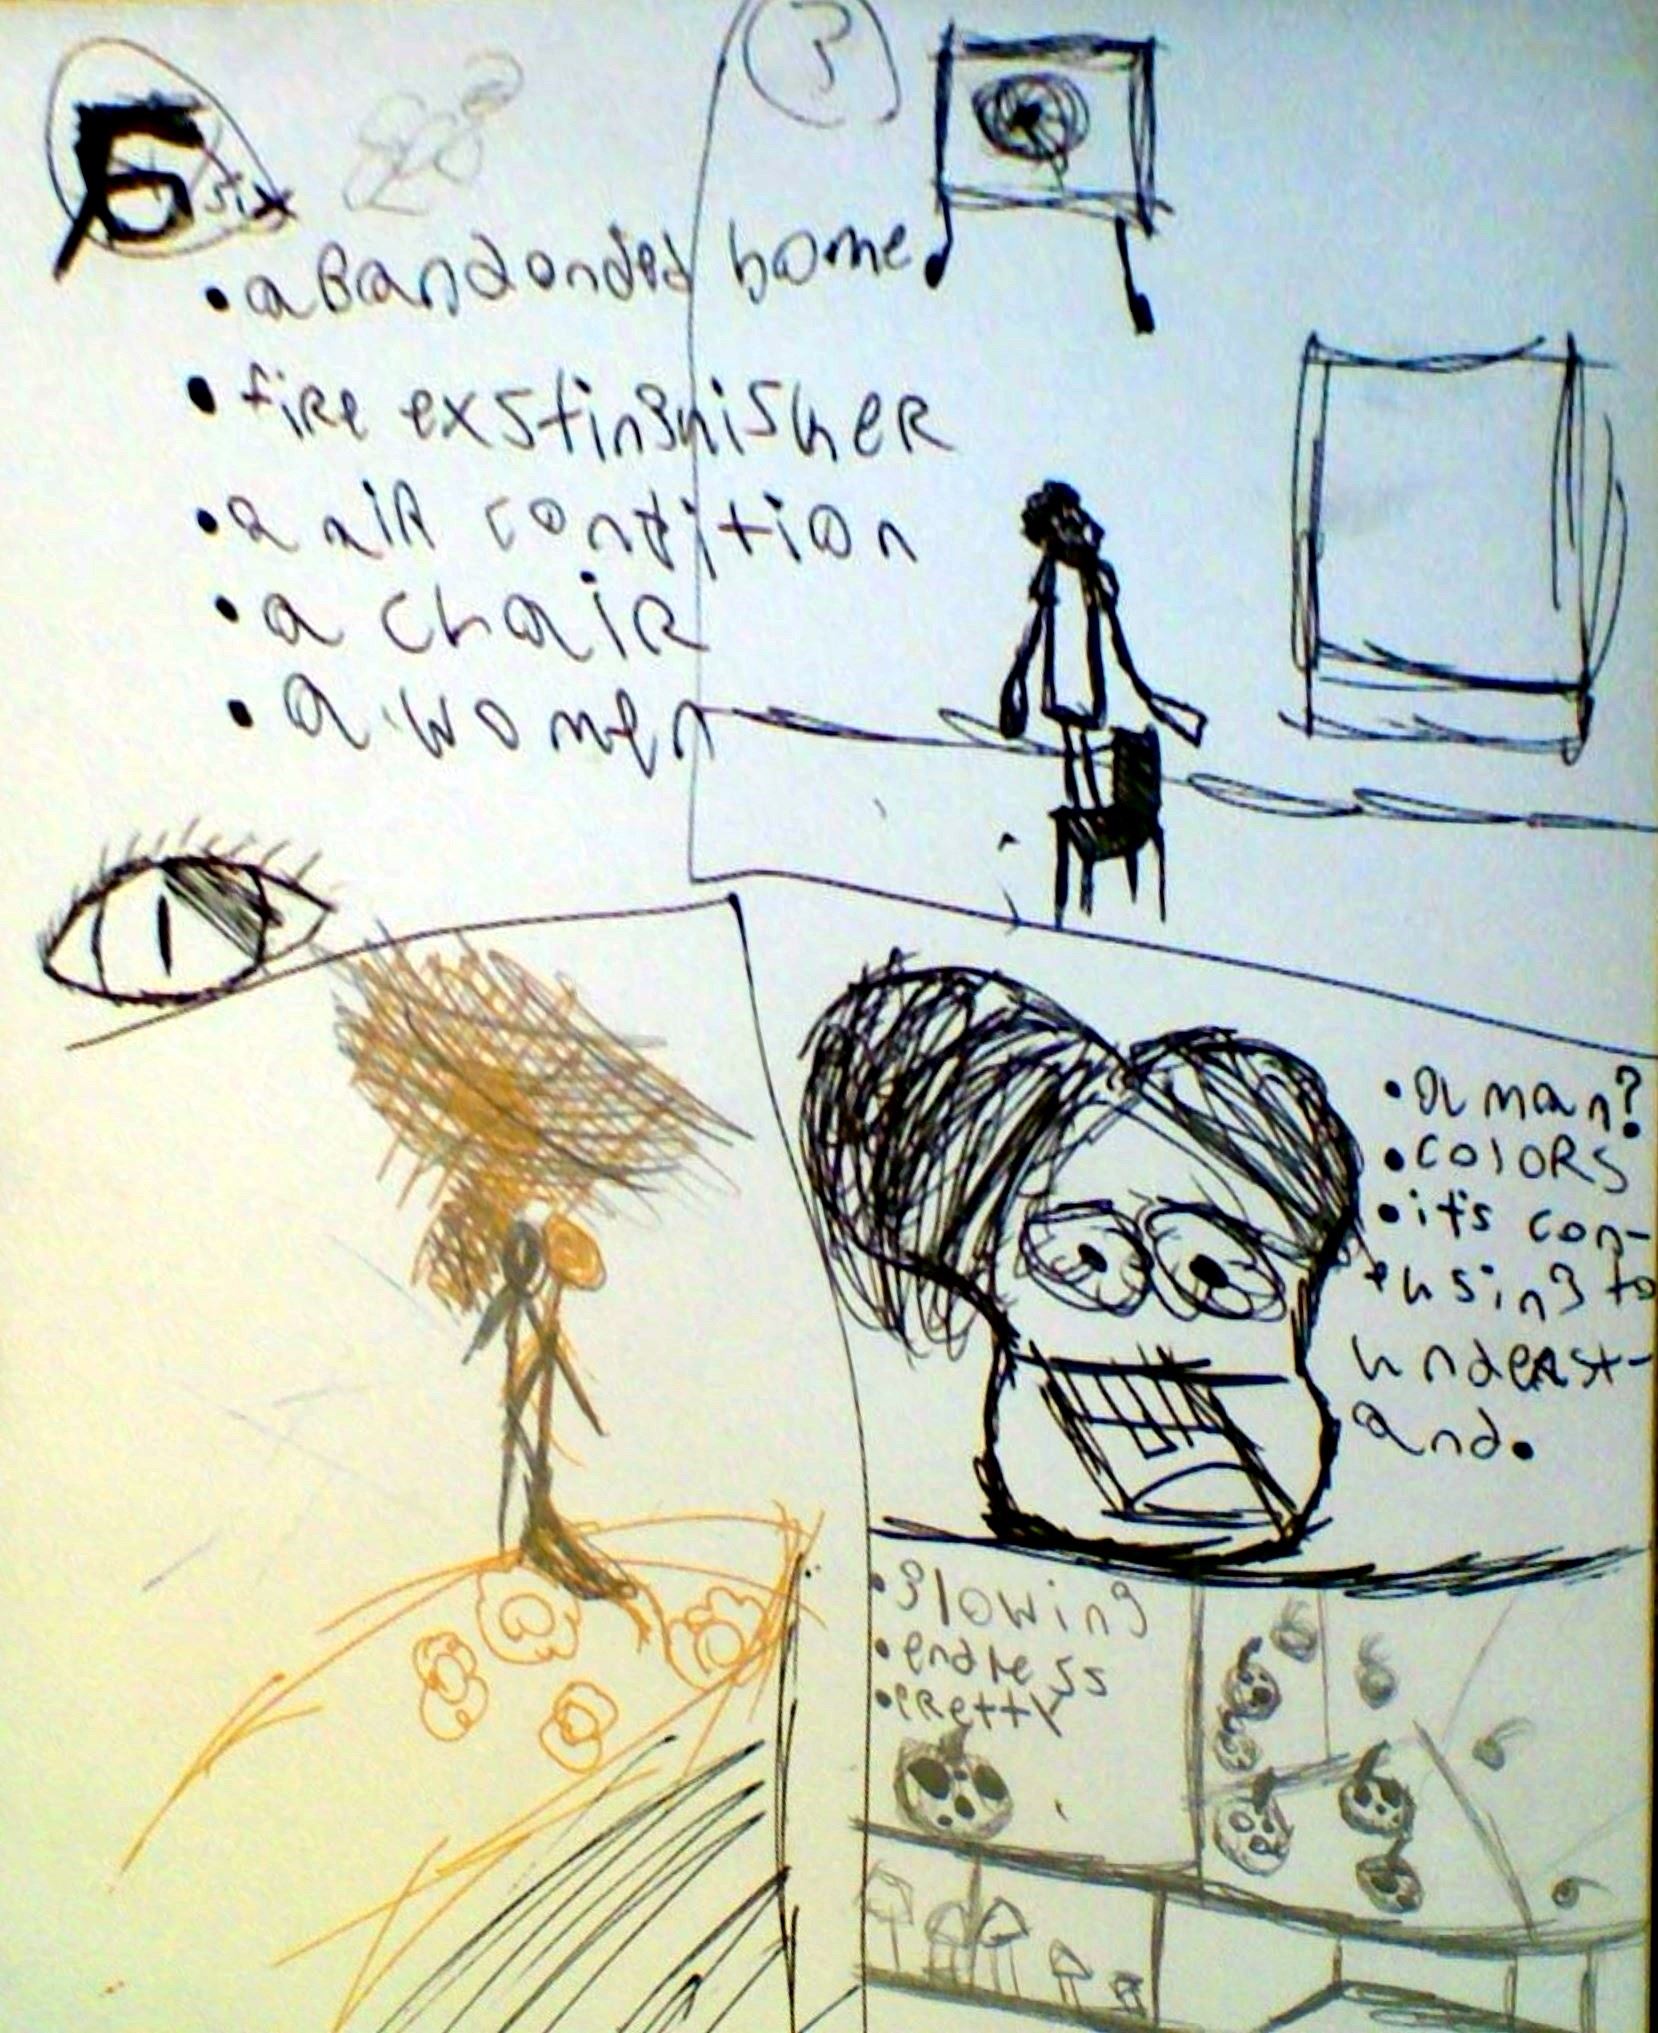 6 six
3
• aBandonded home.
• fiRe exstinguisheR
• a aiR condition
• a chaiR
• a women
• a man?
• colORs
• it's con-
fusing to
undeRst-
and.
• glowing
• endless
• PRetty